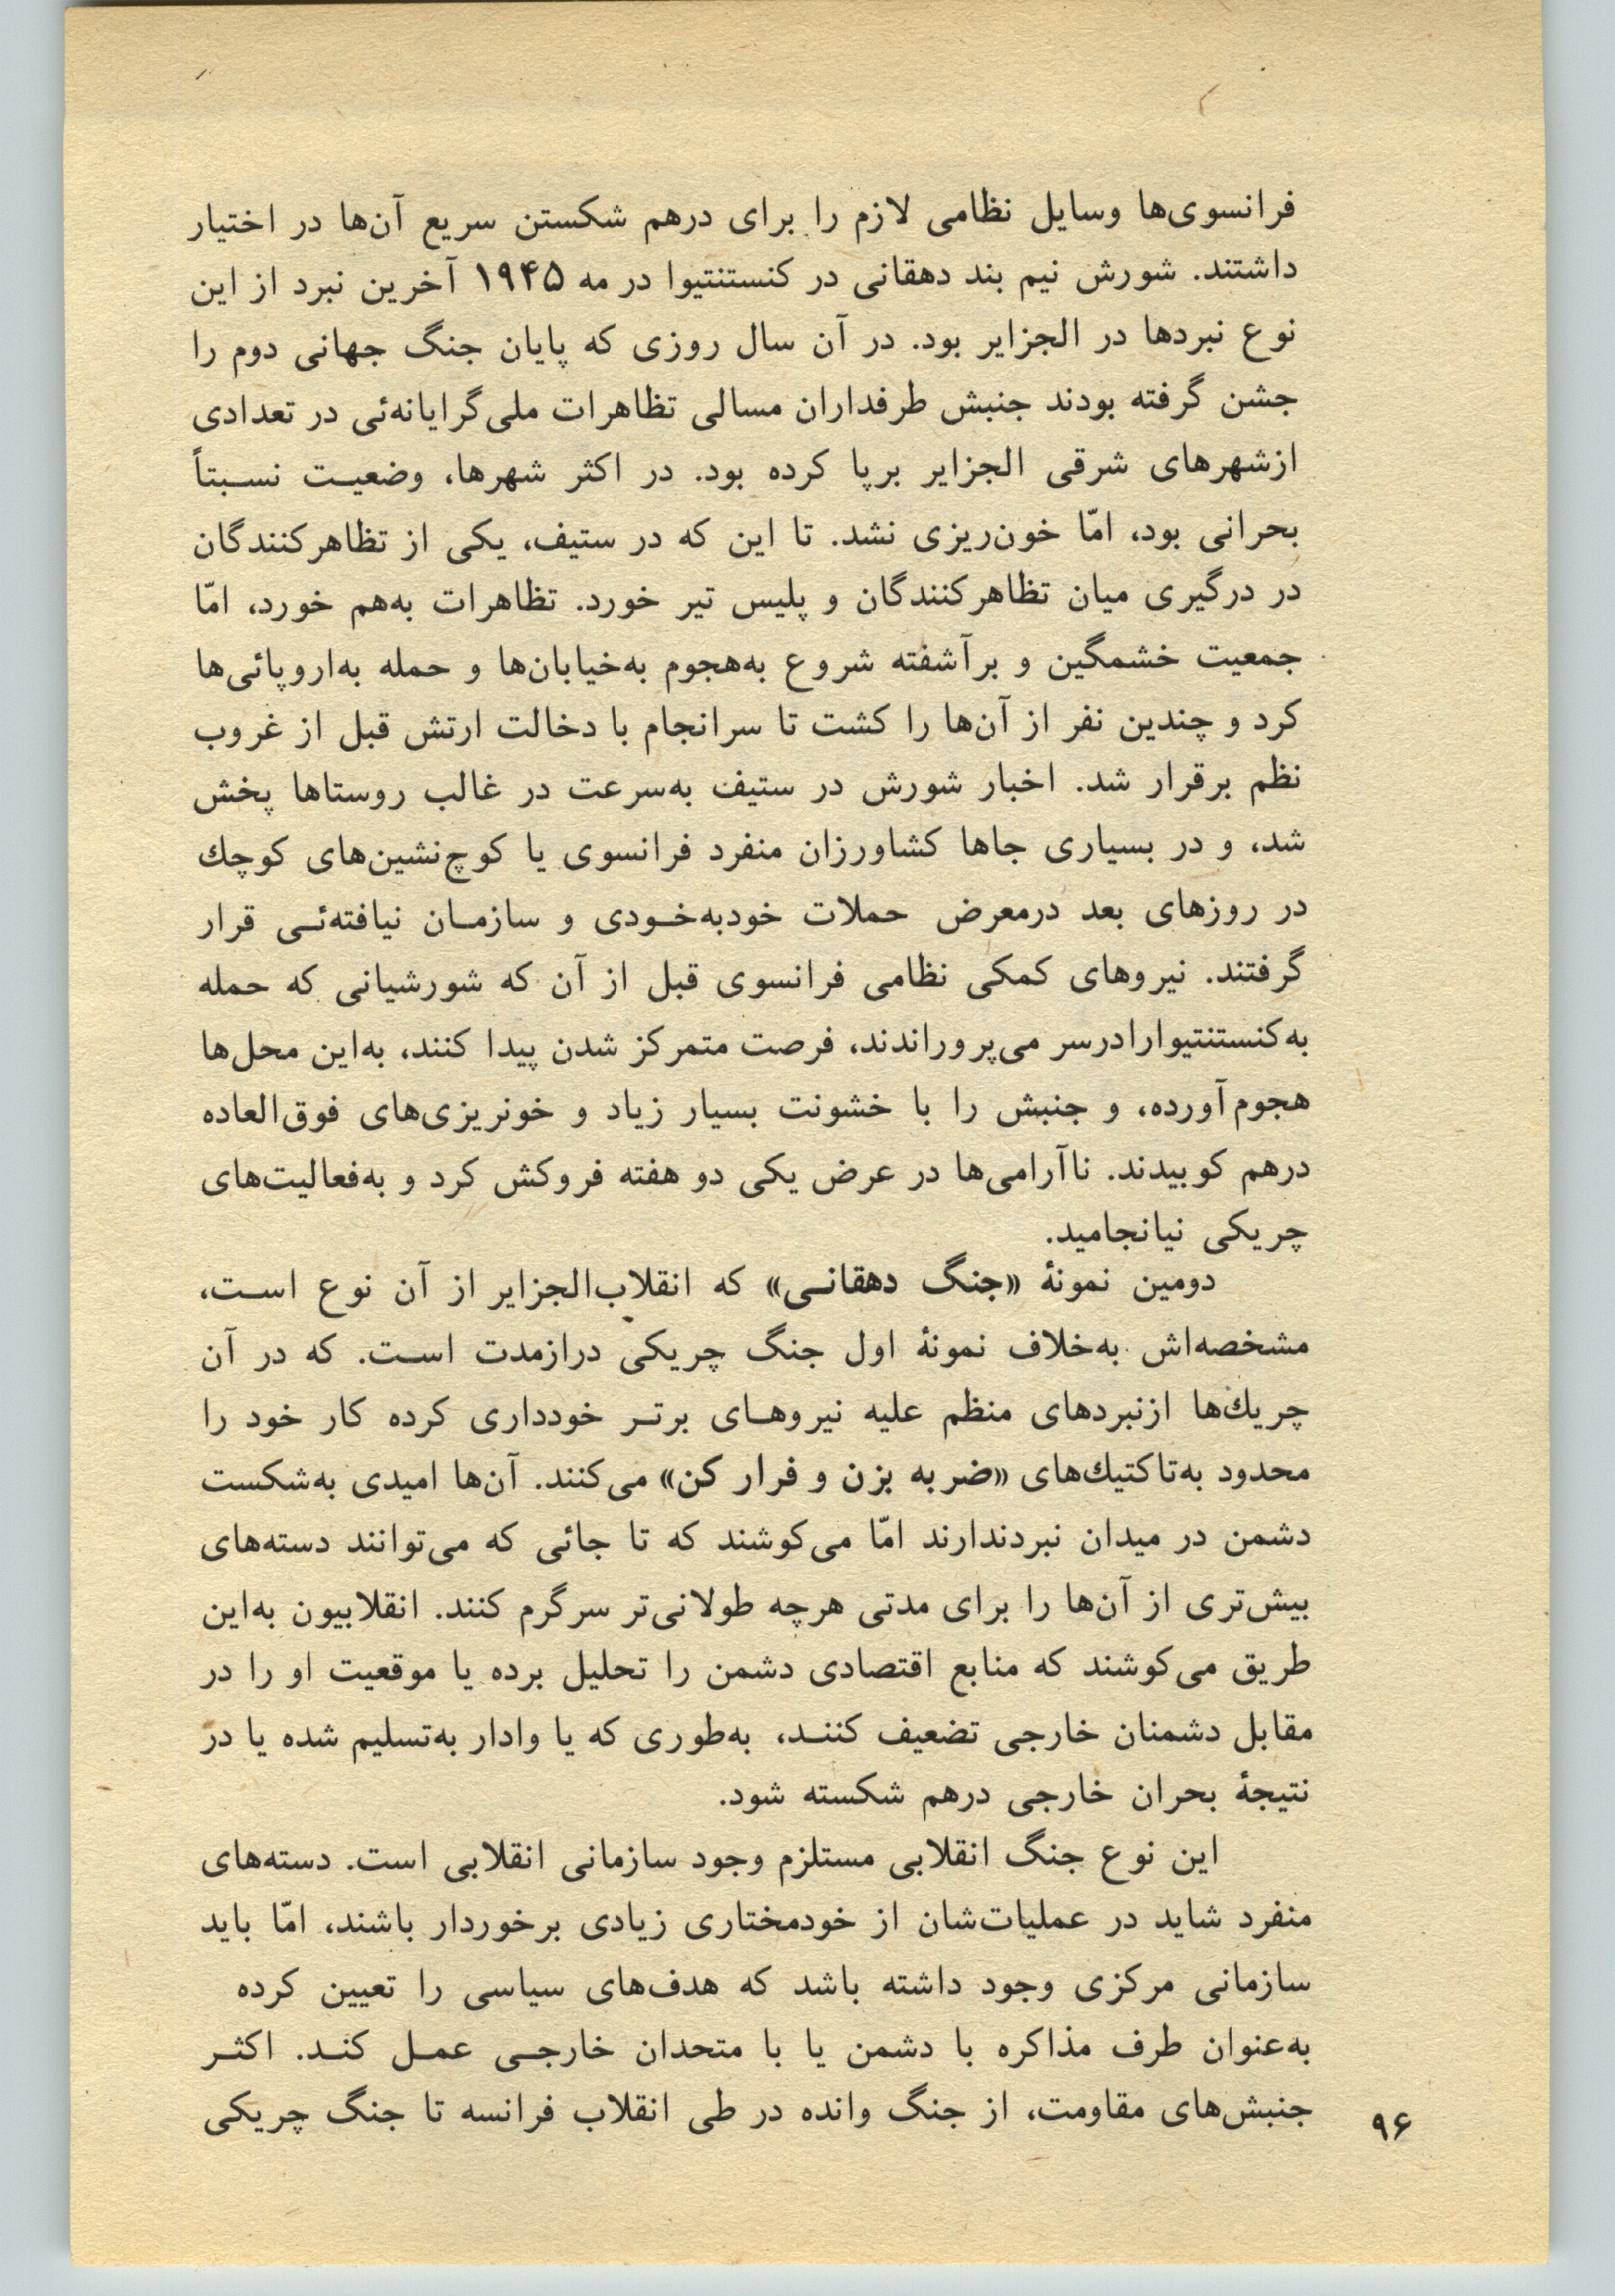 فرانسوی‌ها وسایل نظامی لازم را برای درهم شکستن سریع آن‌ها در اختیار
داشتند. شورش نیم بند دهقانی در کنستنتیوا در مه ۱۹۴۵ آخرین نبرد از این
نوع نبردها در الجزایر بود. در آن سال روزی که پایان جنگ جهانی دوم را
جشن گرفته بودند جنبش طرفداران مسالی تظاهرات ملی‌گرایانه‌ئی در تعدادی
ازشهرهای شرقی الجزایر برپا کرده بود. در اکثر شهرها، وضعیت نسبتاً
بحرانی بود، امّا خون‌ریزی نشد. تا این که در ستیف، یکی از تظاهرکنندگان
در درگیری میان تظاهرکنندگان و پلیس تیر خورد. تظاهرات به‌هم خورد، امّا
جمعیت خشمگین و برآشفته شروع به‌هجوم به‌خیابان‌ها و حمله به‌اروپائی‌ها
کرد و چندین نفر از آن‌ها را کشت تا سرانجام با دخالت ارتش قبل از غروب
نظم برقرار شد. اخبار شورش در ستیف به‌سرعت در غالب روستاها پخش
شد، و در بسیاری جاها کشاورزان منفرد فرانسوی یا کوچ‌نشین‌های کوچك
در روزهای بعد درمعرض حملات خودبه‌خودی و سازمان نیافته‌ئی قرار
گرفتند. نیروهای کمکی نظامی فرانسوی قبل از آن که شورشیانی که حمله
به‌کنستنتیوارادرسر می‌پروراندند، فرصت متمرکز شدن پیدا کنند، به‌این محل‌ها
هجوم‌آورده، و جنبش را با خشونت بسیار زیاد و خونریزی‌های فوق‌العاده
درهم کوبیدند. ناآرامی‌ها در عرض یکی دو هفته فروکش کرد و به‌فعالیت‌های
چریکی نیانجامید.
دومین نمونهٔ «جنگ دهقانی» که انقلاب‌الجزایر از آن نوع است،
مشخصه‌اش به‌خلاف نمونهٔ اول جنگ چریکی درازمدت است. که در آن
چریك‌ها ازنبردهای منظم علیه نیروهای برتر خودداری کرده کار خود را
محدود به‌تاکتیك‌های «ضربه بزن و فرار کن» می‌کنند. آن‌ها امیدی به‌شکست
دشمن در میدان نبردندارند امّا می‌کوشند که تا جائی که می‌توانند دسته‌های
بیش‌تری از آن‌ها را برای مدتی هرچه طولانی‌تر سرگرم کنند. انقلابیون به‌این
طریق می‌کوشند که منابع اقتصادی دشمن را تحلیل برده یا موقعیت او را در
مقابل دشمنان خارجی تضعیف کنند، به‌طوری که یا وادار به‌تسلیم شده یا در
نتیجهٔ بحران خارجی درهم شکسته شود.
این نوع جنگ انقلابی مستلزم وجود سازمانی انقلابی است. دسته‌های
منفرد شاید در عملیات‌شان از خودمختاری زیادی برخوردار باشند، امّا باید
سازمانی مرکزی وجود داشته باشد که هدف‌های سیاسی را تعیین کرده
به‌عنوان طرف مذاکره با دشمن یا با متحدان خارجی عمل کند. اکثر
جنبش‌های مقاومت، از جنگ وانده در طی انقلاب فرانسه تا جنگ چریکی
۹۶